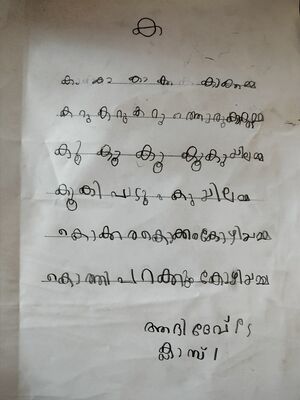 ക
കാ കാ കാ ക കാക്കമ്മ
ക റു ക റു ക റു ത്തൊരു കാക്കമ്മ
കൂ കൂ കൂ കൂ കുയിലമ്മ
കൂകി പാടും കുയിലമ്മ
കൊക്കരകൊക്കരകോഴിയമ്മ
കൊത്തി പറക്കും കോഴിയമ്മ
ആദി ദേവ്
ക്ലാസ് 1